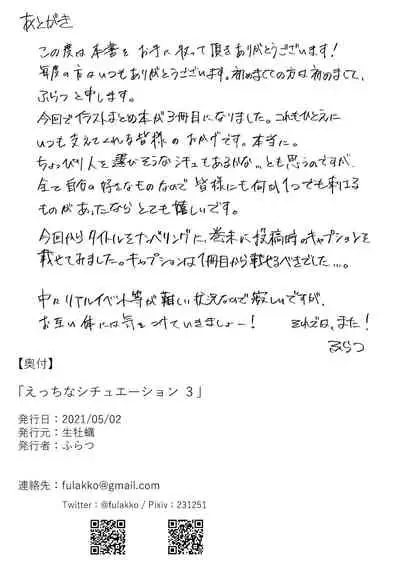 あとがき
この度は本書をお手に取って頂きありがとうございます!
毎度の方はいつもありがとうございます。初めましての方は初めまして、
ふらつと申します。
今回でイラストまとめ本が3冊目になりました。これもひとえに
いつも支えてくれる皆様のおかげです。本当に。
ちょっぴり人を選びそうなシチュもあるかな…とも思うのですが、
全て自分の好きなものなので皆様にも何か1つでも刺さる
ものがあったならとても嬉しいです。
今回からタイトルをナンバリングに、巻末に投稿時のキャプションを
載せてみました。キャプションは1冊目から載せるべきでした…。
中々リアルイベント等が難しい状況なので寂しいですが、
お互い体には気をつけていきましょー! それでは、また!
ふらつ
【奥付】
「えっちなシチュエーション 3」
発行日:2021/05/02
発行元:生牡蠣
発行者:ふらつ
連絡先:fulakko@gmail.com
Twitter:@fulakko / Pixiv:231251